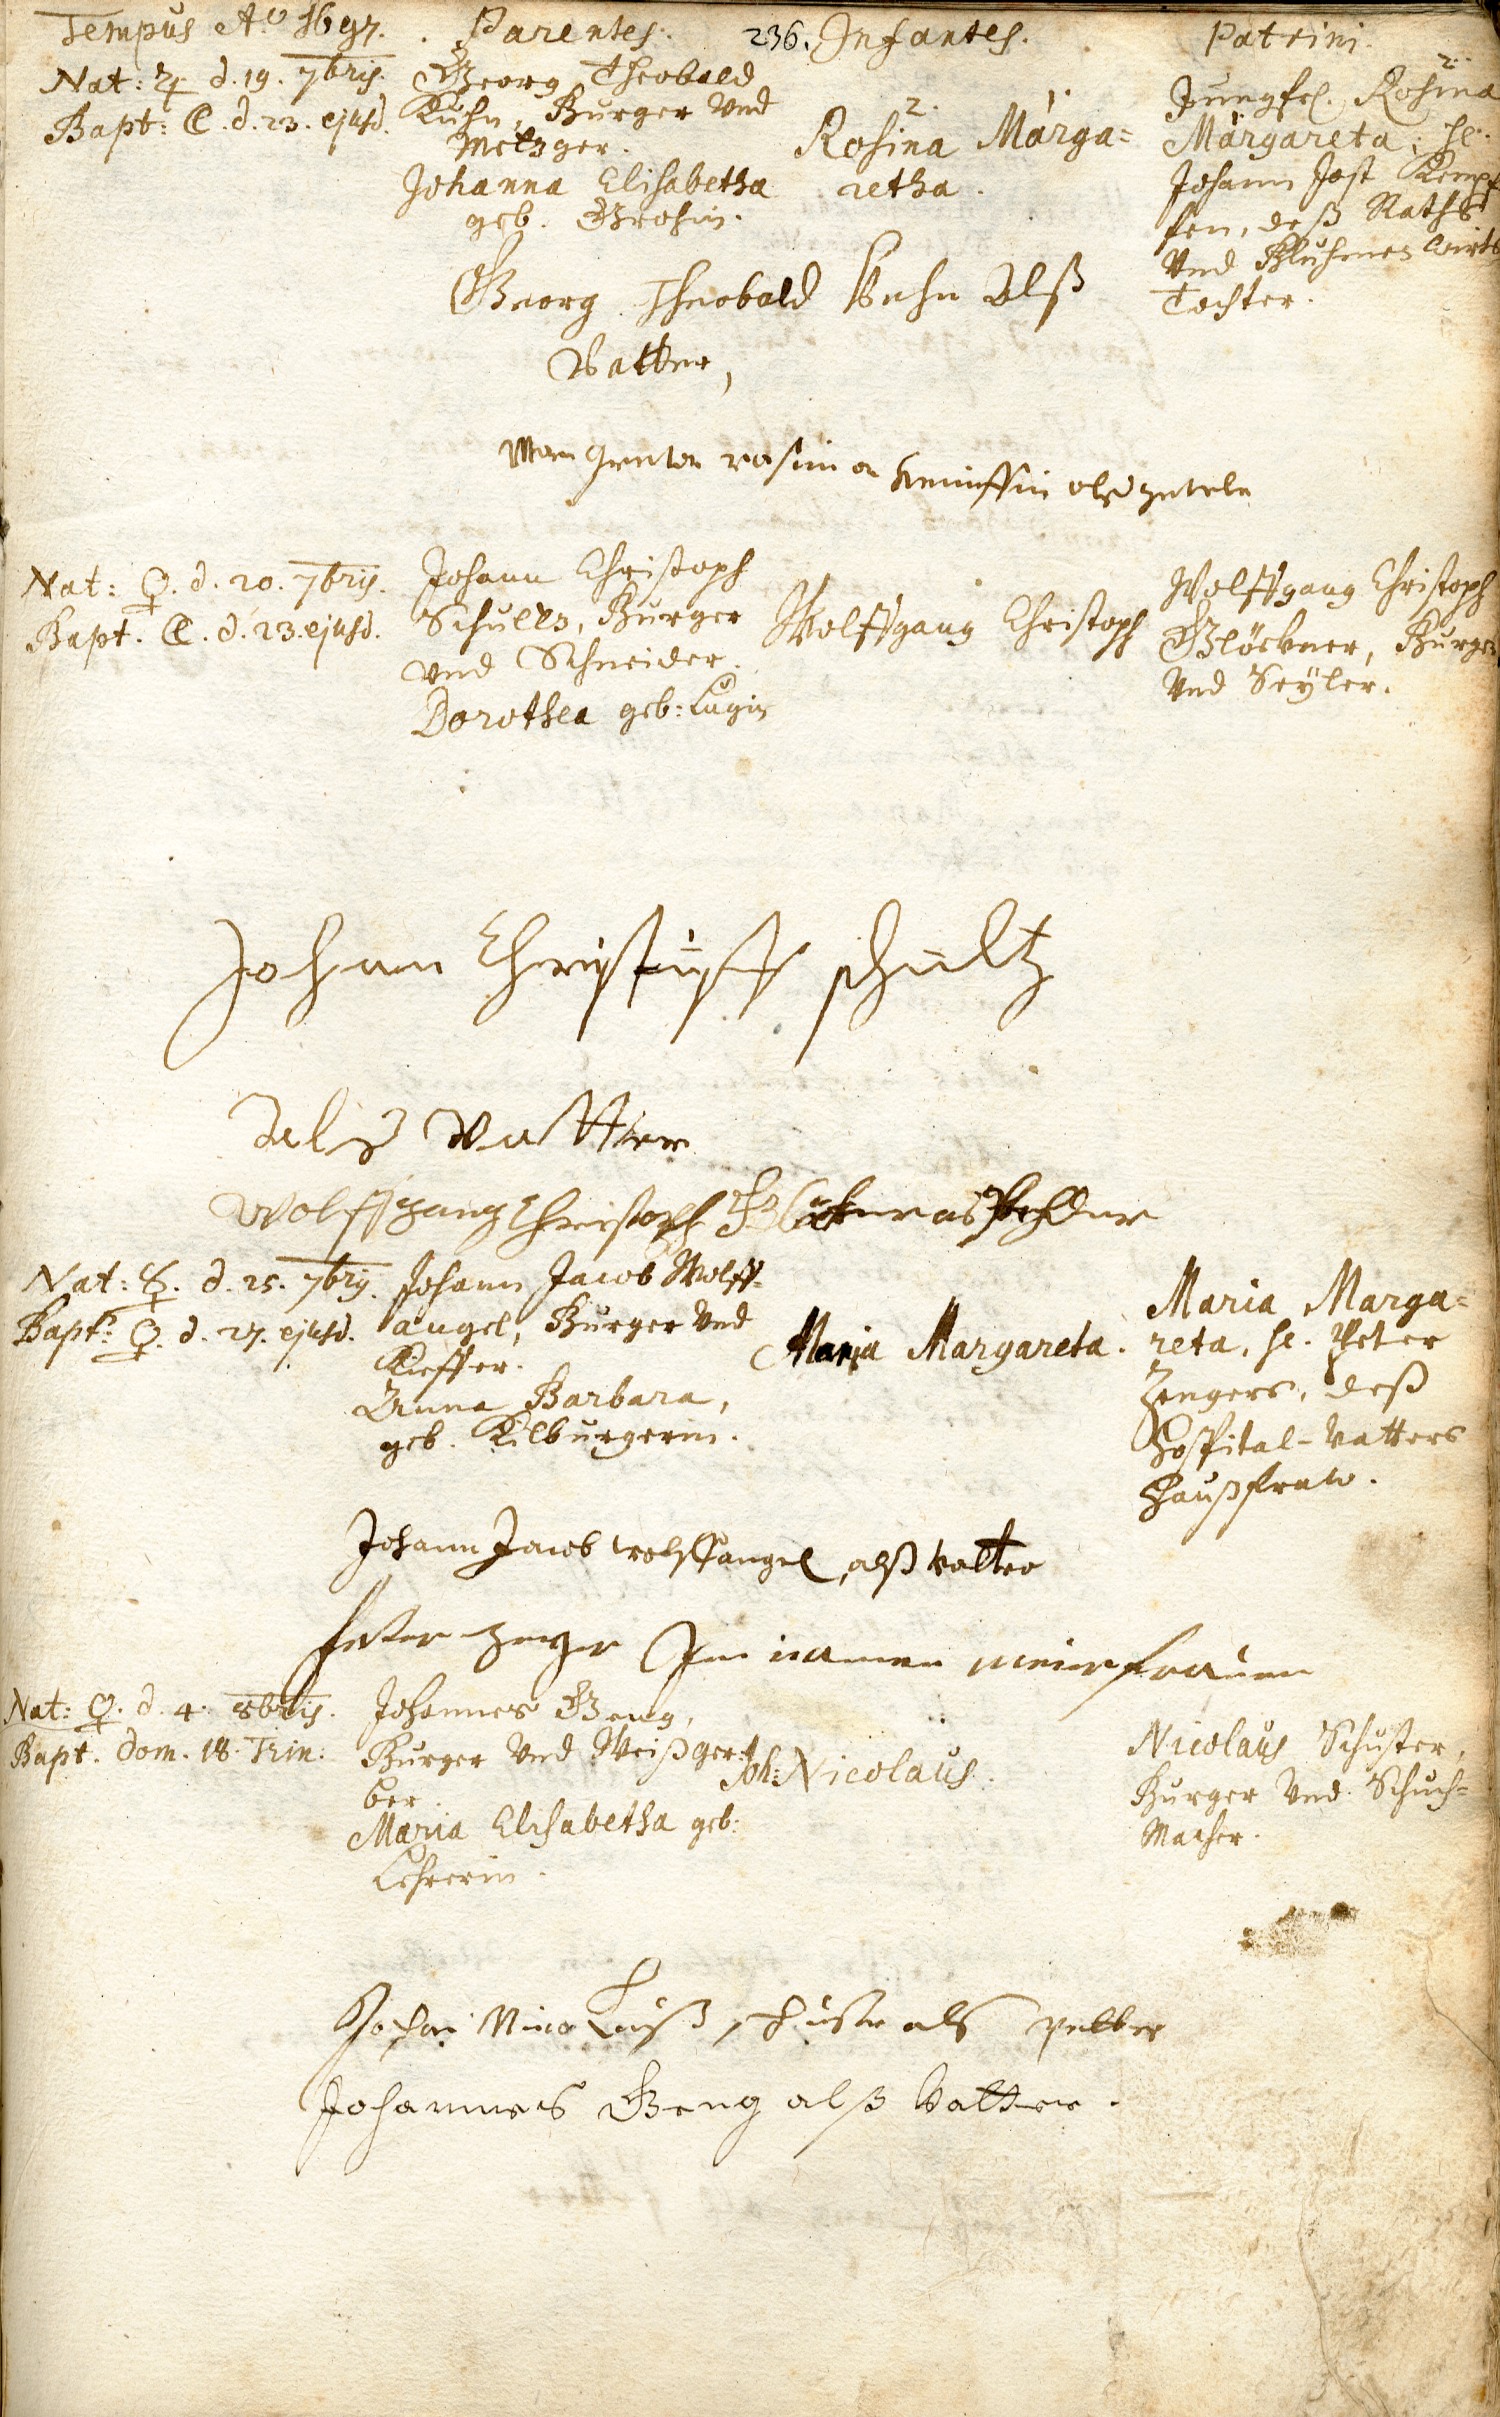 Tempus Aō 1697. Parentes. 236. Infantes. Patrini.
Nat: ♃ d. 19. 7bris.
Bapt: ☾. d. 23. ejusd.
Georg Theobald
Kuhn, Burger und
Metzger.
Johanna Elisabetha
geb. Grosin.
2. 1.
Rosina Marga=
retha.
2.
Jungfr. Rosina
Margareta, H.
Johann Jost Kempf
fen, deß Raths
und Bluhmen wirts
Tochter.
Georg Theobald Kuhn Alß
Vatter,
als
Nat: ♀. d. 20. 7bris.
Bapt. ☾. d. 23. ejusd.
Johann Christoph
Schultz, Burger
und Schneider.
Dorothea geb: Lugin
Wolffgang Christoph
Wolffgang Christoph
Glöckner, Burger
und Seyler.
Johann Schultz
Als Vatter
Wolffgang Christoph
Nat: ☿. d. 25. 7bris.
Bapt: ♀. d. 27. ejusd.
Johann Jacob Wolff-
angel, Burger und
Kieffer.
Anna Barbara,
geb. Kilburgerin.
Maria Margareta.
Maria Marga=
reta, H. Peter
Zengers, deß
Hospital-Vatters
Haußfraw.
Johann Jacob wolffangel, alß vatter
Peter Zenger Im namen meiner frauen
Nat: ♀. d. 4. 8bris.
Bapt. Dom. 18. Trin:
Johannes Geng,
Burger und Weißger-
ber.
Maria Elisabetha geb:
Lehrerin.
Joh: Nicolaus.
Nicolaus Schuster,
Burger und Schuch=
Macher.
als petter
Johannes Geng alß Vatter.